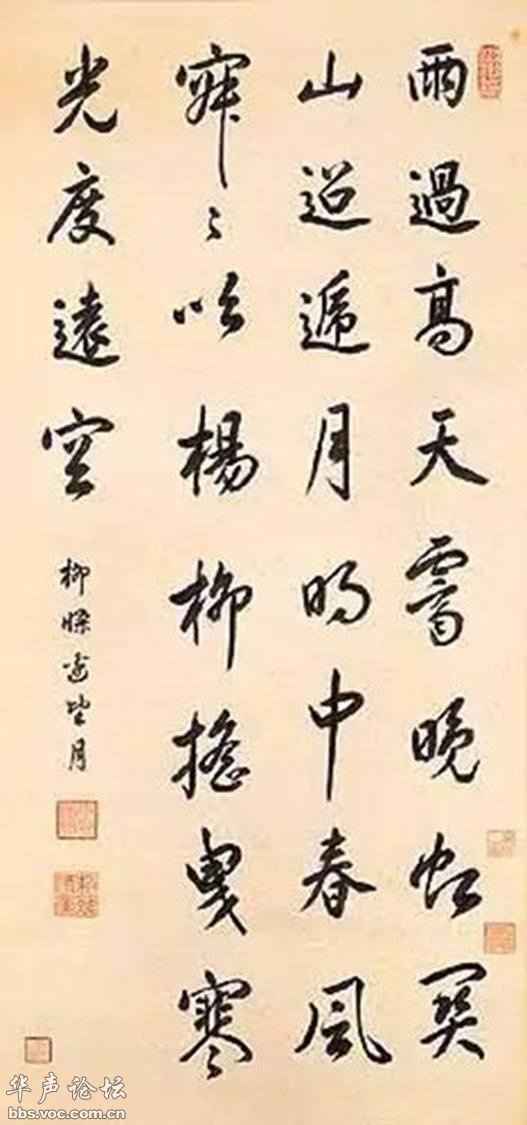 雨過高天霽晚虹關
山迢遞月明中春風
寂〻吹楊柳搖曳寒
光度遠空
柳條邊望月
华声论坛
bbs.voc.com.cn